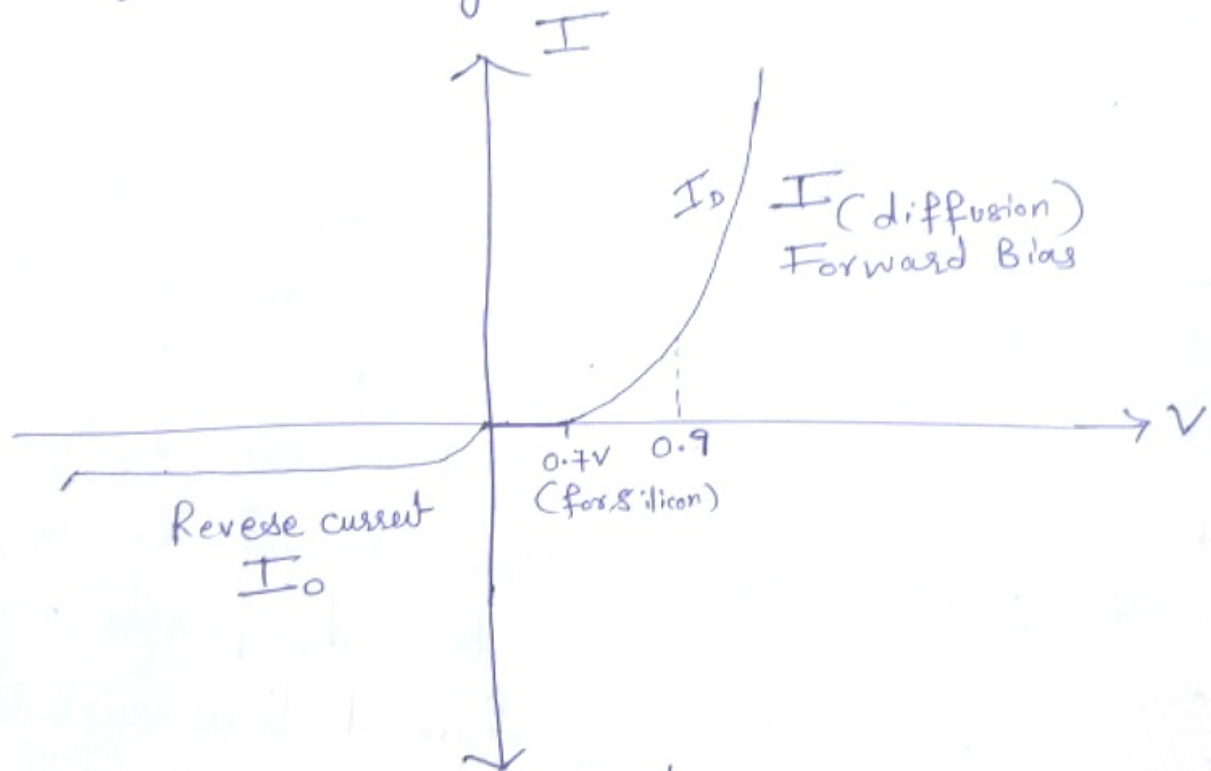 I
I_D
I (diffusion)
Forward Bias
V
0.7V
0.9
(for silicon)
Reverse current
I_0